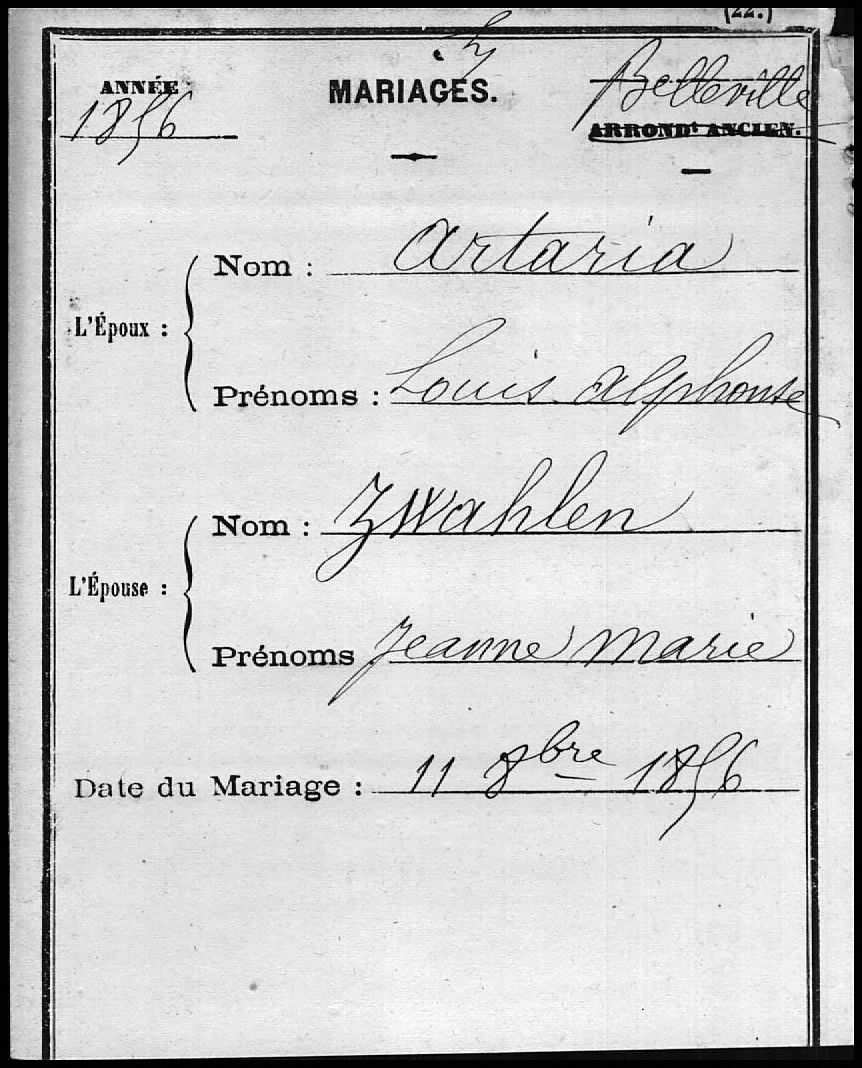 (22.)
ANNÉE
1856
MARIAGES.
Belleville
ARRONDt ANCIEN.
L'Époux :
Nom : Artaria
Prénoms : Louis Alphonse
L'Épouse :
Nom : Zwahlen
Prénoms Jeanne Marie
Date du Mariage : 11 8bre 1856